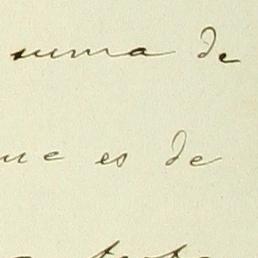 suma de
ue es de